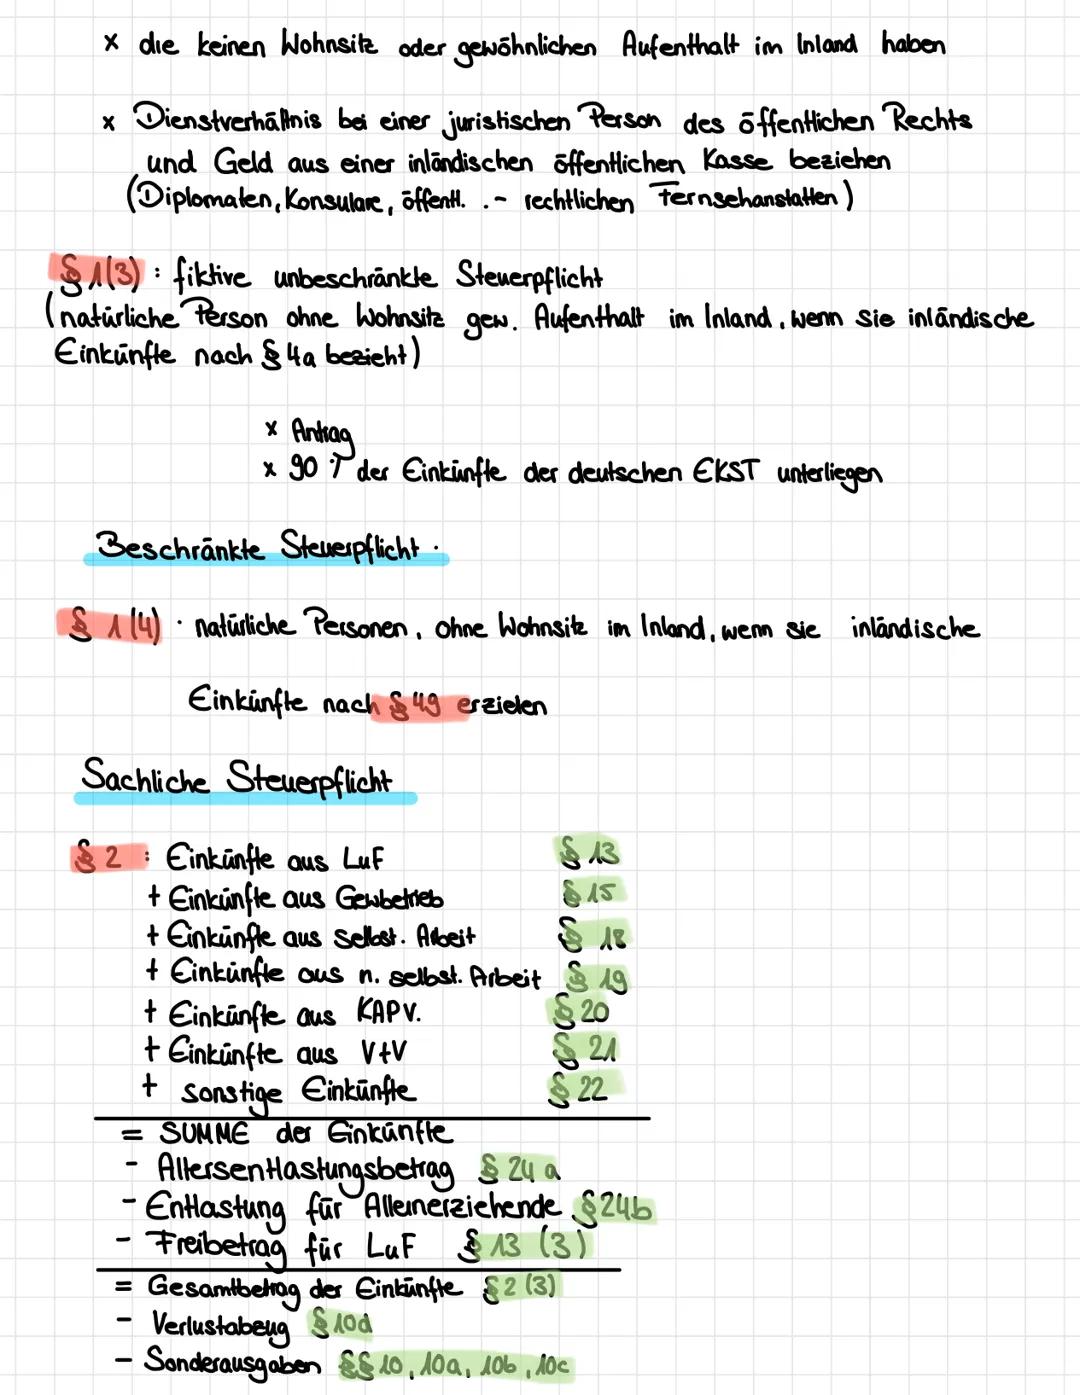 x die keinen Wohnsitz oder gewöhnlichen Aufenthalt im Inland haben
x Dienstverhältnis bei einer juristischen Person des öffentlichen Rechts
und Geld aus einer inländischen öffentlichen Kasse beziehen
(Diplomaten, Konsulare, öffentl. .- rechtlichen Fernsehanstalten)
§ 1(3) : fiktive unbeschränkte Steuerpflicht
(natürliche Person ohne Wohnsitz gew. Aufenthalt im Inland, wenn sie inländische
Einkünfte nach § 4a bezieht)
x Antrag
x 90 % der Einkünfte der deutschen EKST unterliegen
Beschränkte Steuerpflicht .
§ 1 (4) · natürliche Personen, ohne Wohnsitz im Inland, wenn sie inländische
Einkünfte nach § 49 erzielen
Sachliche Steuerpflicht
§ 2 : Einkünfte aus LuF § 13
+ Einkünfte aus Gewbetrieb § 15
+ Einkünfte aus selbst. Arbeit § 18
+ Einkünfte aus n. selbst. Arbeit § 19
+ Einkünfte aus KAPV. § 20
+ Einkünfte aus V+V § 21
+ sonstige Einkünfte § 22
= SUMME der Einkünfte
- Altersentlastungsbetrag § 24 a
- Entlastung für Alleinerziehende § 24b
- Freibetrag für LuF § 13 (3)
= Gesamtbetrag der Einkünfte § 2 (3)
- Verlustabzug § 10d
- Sonderausgaben §§ 10, 10a, 10b, 10c